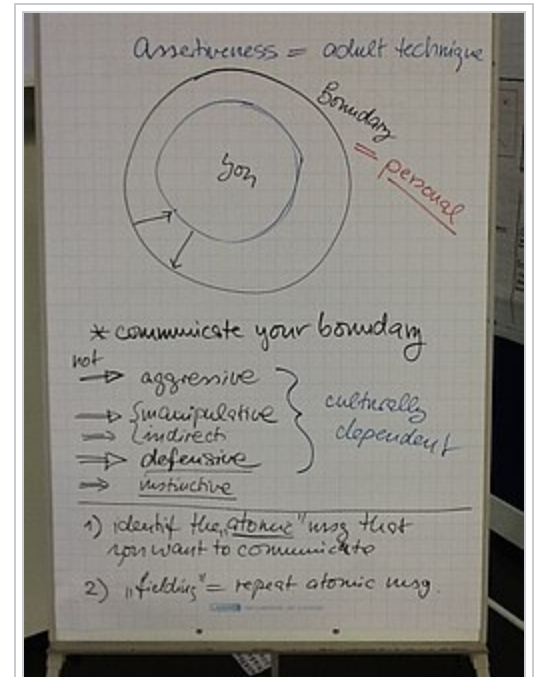 Assertiveness = adult technique
Boundary
= personal
you
* communicate your boundary
not
⇒ aggressive
⇒ { manipulative
⇒ { indirect
⇒ defensive
⇒ instinctive
} culturally
dependent
1) identif the „atomic" msg that
you want to communicate
2) „fielding" = repeat atomic msg.